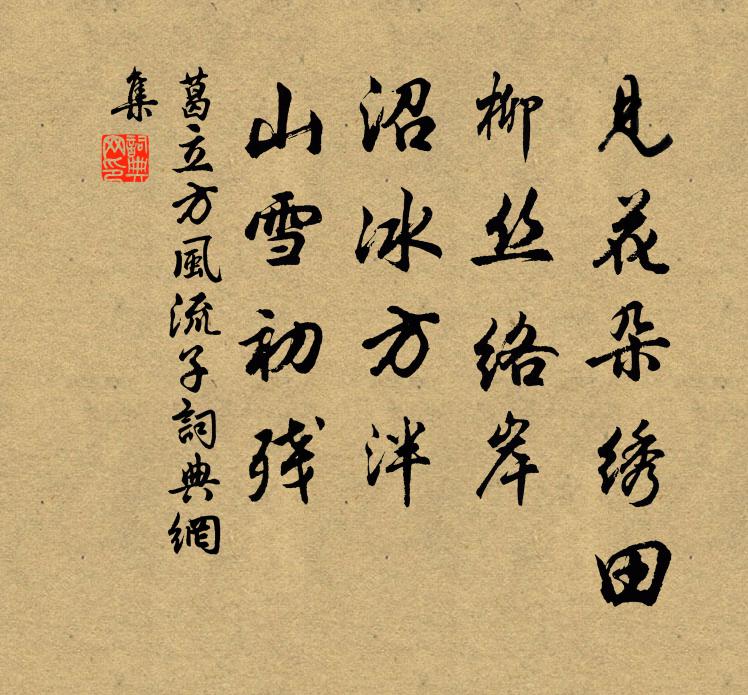 见花朵绣田
柳丝络岸
沼冰方泮
山雪初残
葛立方風流子詞典網
集
詞典
网印